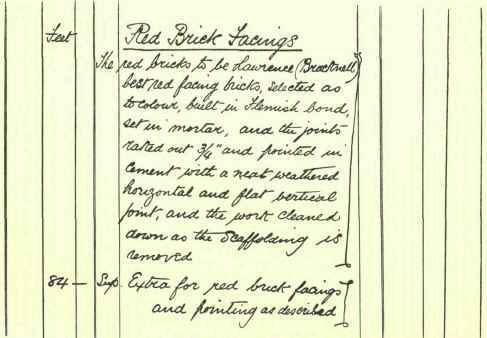 Feet Red Brick Facings
The red bricks to be Lawrence (Bracknell)
best red facing bricks, selected as
to colour, built in Flemish bond,
set in mortar, and the joints
raked out 3/4" and pointed in
cement with a neat weathered
horizontal and flat vertical
joint, and the work cleaned
down as the Scaffolding is
removed
84 — Sup. Extra for red brick facings
and pointing as described